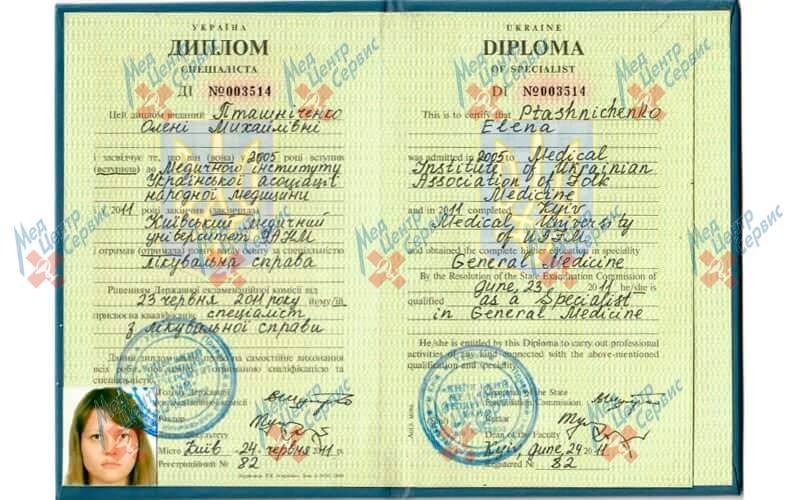 УКРАЇНА
ДИПЛОМ
СПЕЦІАЛІСТА
ДІ №003514
Цей диплом виданий Пташніченко
Олені Михайлівні
і засвідчує те, що він (вона) у 2005 році вступив
(вступила) до Медичного інституту
Української асоціації
народної медицини
2011 році закінчив (закінчила)
Київський медичний
університет УАНМ
і отримав (отримала) повну вищу освіту за спеціальністю
лікувальна справа
Рішенням Державної екзаменаційної комісії від
23 червня 2011 року йому/їй
присвоєно кваліфікацію спеціаліст
з лікувальної справи
Даний диплом дає право на самостійне виконання
всіх робіт, кваліфікацією та
спеціальністю.
Голова Державної
екзаменаційної комісії
Ректор
Місто Київ 24 червня 2011 р.
Реєстраційний № 82
UKRAINE
DIPLOMA
OF SPECIALIST
DI №003514
This is to certify that Ptashnichenko
Elena
was admitted in 2005 to Medical
Institute of Ukrainian
Association of Folk
Medicine
and in 2011 completed Kyiv
Medical University
of UAFM
and obtained the complete higher education in speciality
General Medicine
By the Resolution of the State Examination Commission of
June, 23 2011 he/she is
qualified as a Specialist
in General Medicine
He/she is entitled by this Diploma to carry out professional
activities of any kind connected with the above-mentioned
qualification and speciality.
Chairman of the State
Examination Commission
Rector
Dean of the Faculty
Kyiv, June, 24 2011
Registered № 82
Мед Центр Сервис
Мед Центр Сервис
Мед Центр Сервис
Мед Центр Сервис
Мед Центр Сервис
Мед Центр Сервис
Мед Центр Сервис
Мед Центр Сервис